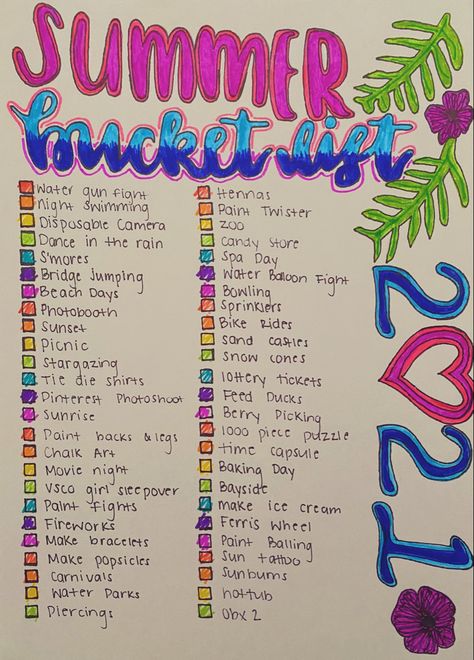 SUMMER
bucket list
2021
Water gun fight
Night Swimming
Disposable Camera
Dance in the rain
S'mores
Bridge Jumping
Beach Days
Photobooth
Sunset
Picnic
Stargazing
Tie die shirts
Pinterest Photoshoot
Sunrise
Paint backs & legs
Chalk Art
Movie night
VSCO girl sleepover
Paint fights
Fireworks
Make bracelets
Make popsicles
Carnivals
Water Parks
Piercings
Hennas
Paint Twister
Zoo
Candy Store
Spa Day
Water Baloon Fight
Bowling
Sprinklers
Bike Rides
Sand castles
Snow cones
lottery tickets
Feed Ducks
Berry Picking
1000 piece puzzle
time capsule
Baking Day
Bayside
make ice cream
Ferris Wheel
Paint Balling
Sun tattoo
Sunburns
hottub
Obx 2